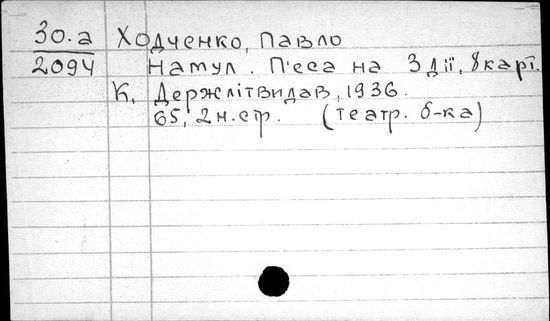 30.а Ходченко, Павло
2094 Намул. П'еса на 3 дії, 8 карт.
К. Держлітвидав, 1936.
65, 2 н. стр. (театр. б-ка)